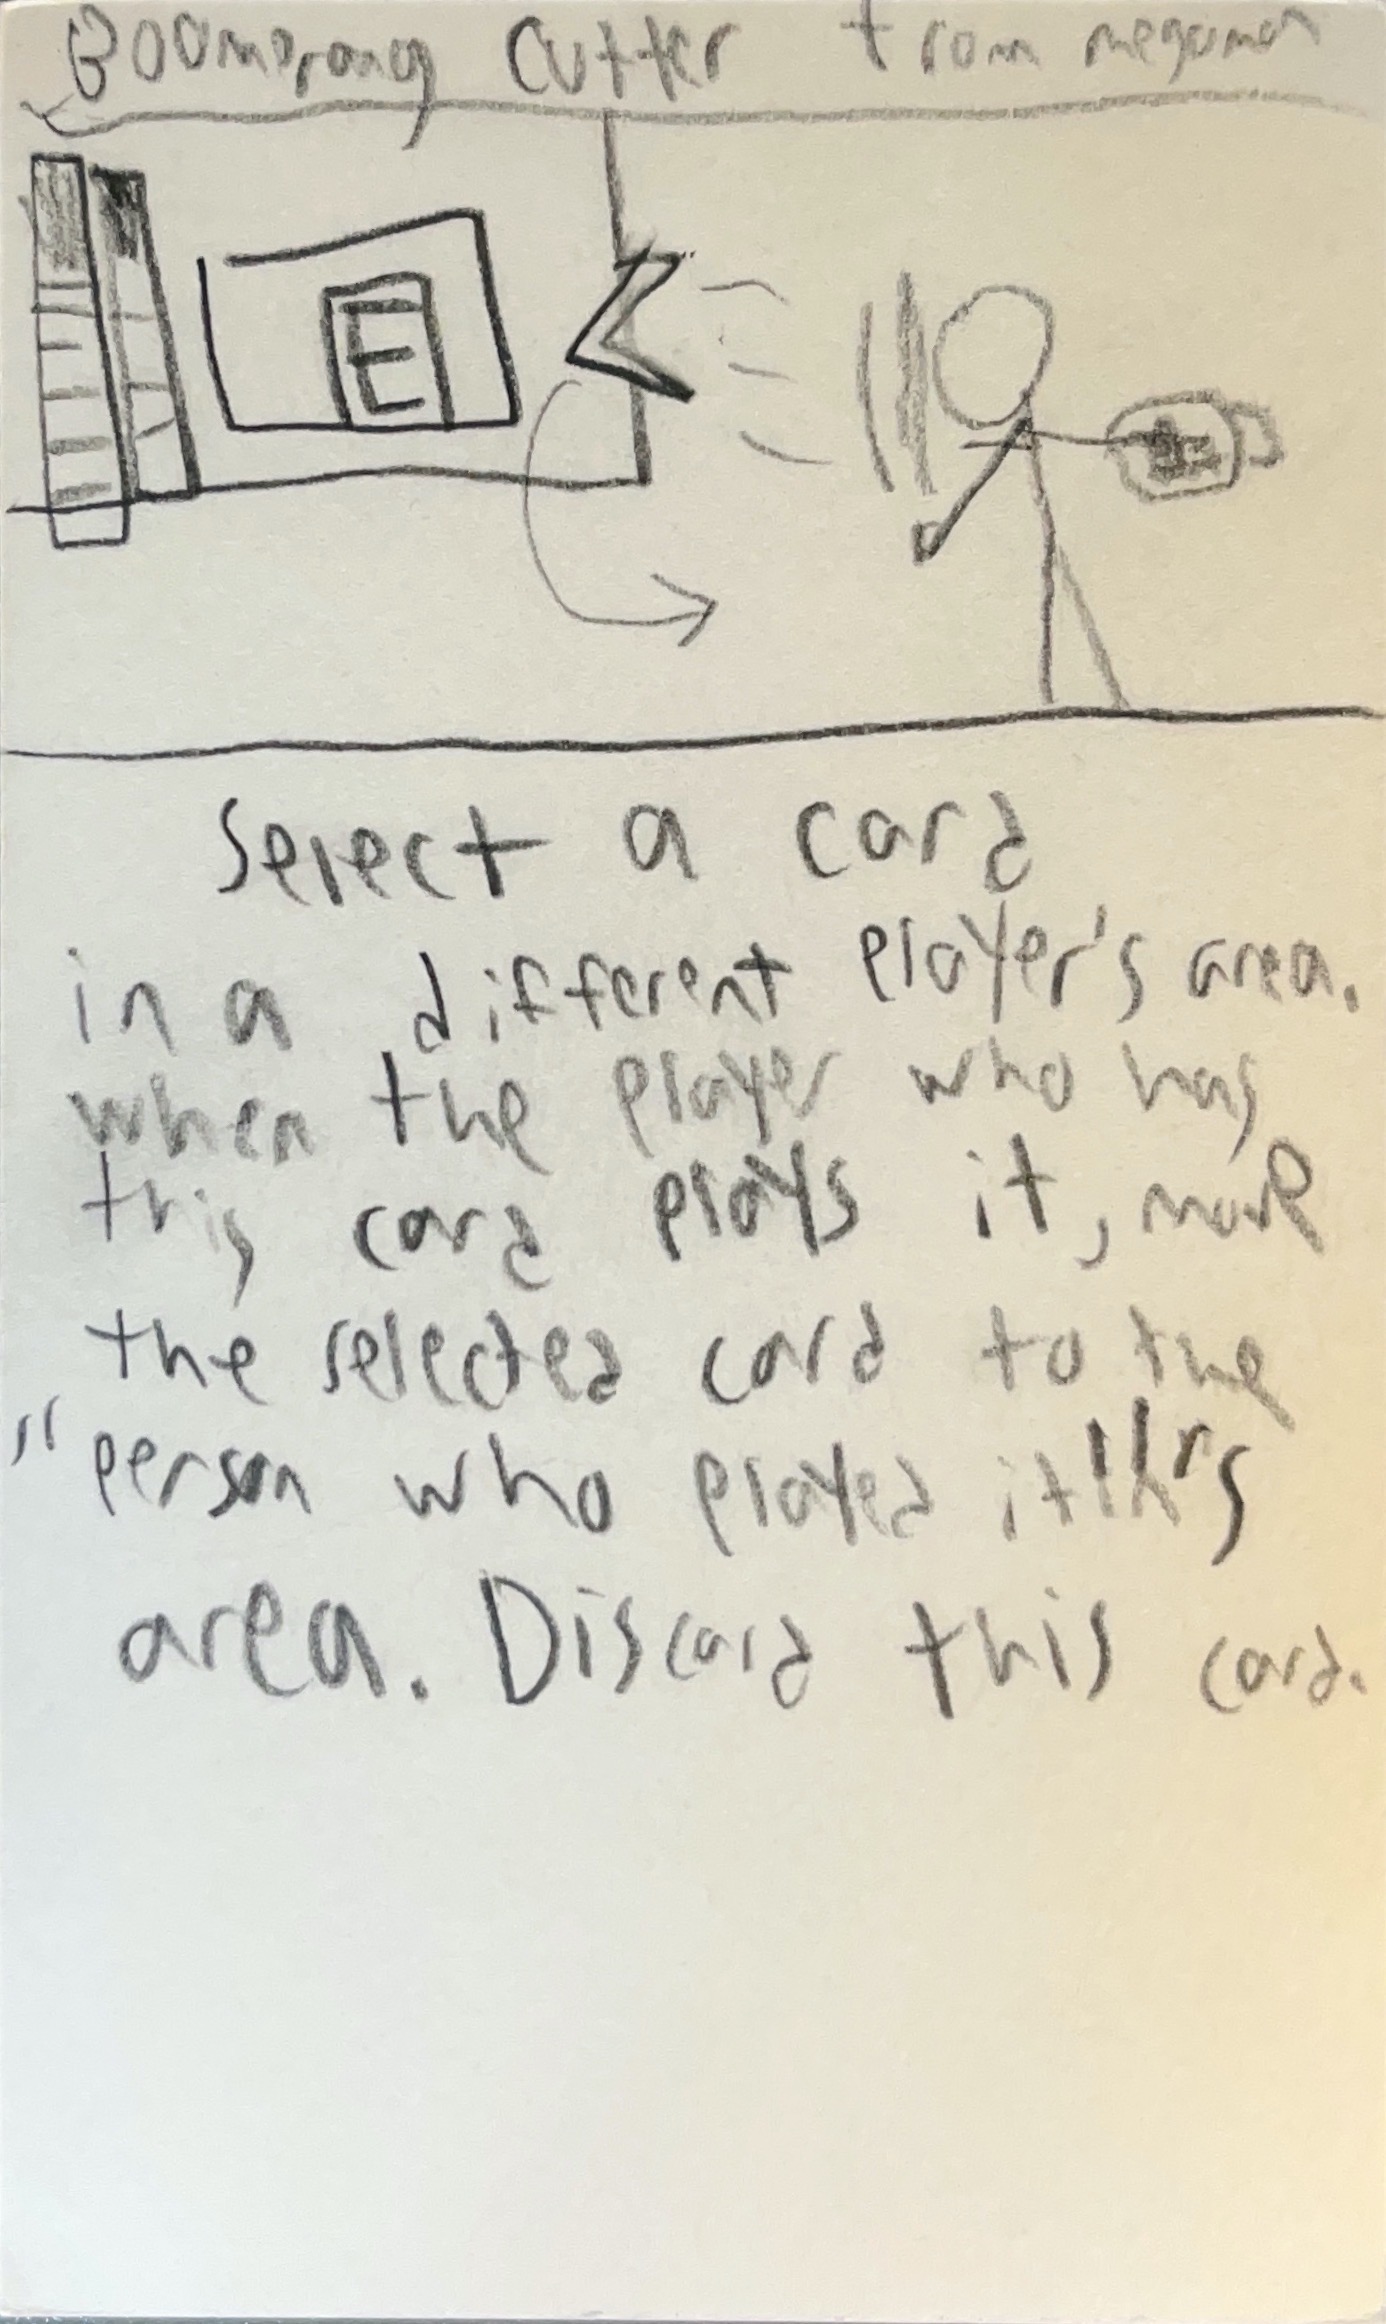 Boomerang Cutter from megaman
E
Select a card
in a different player's area.
when the player who has
this card plays it, move
the selected card to the
"person who played it"'s
area. Discard this card.